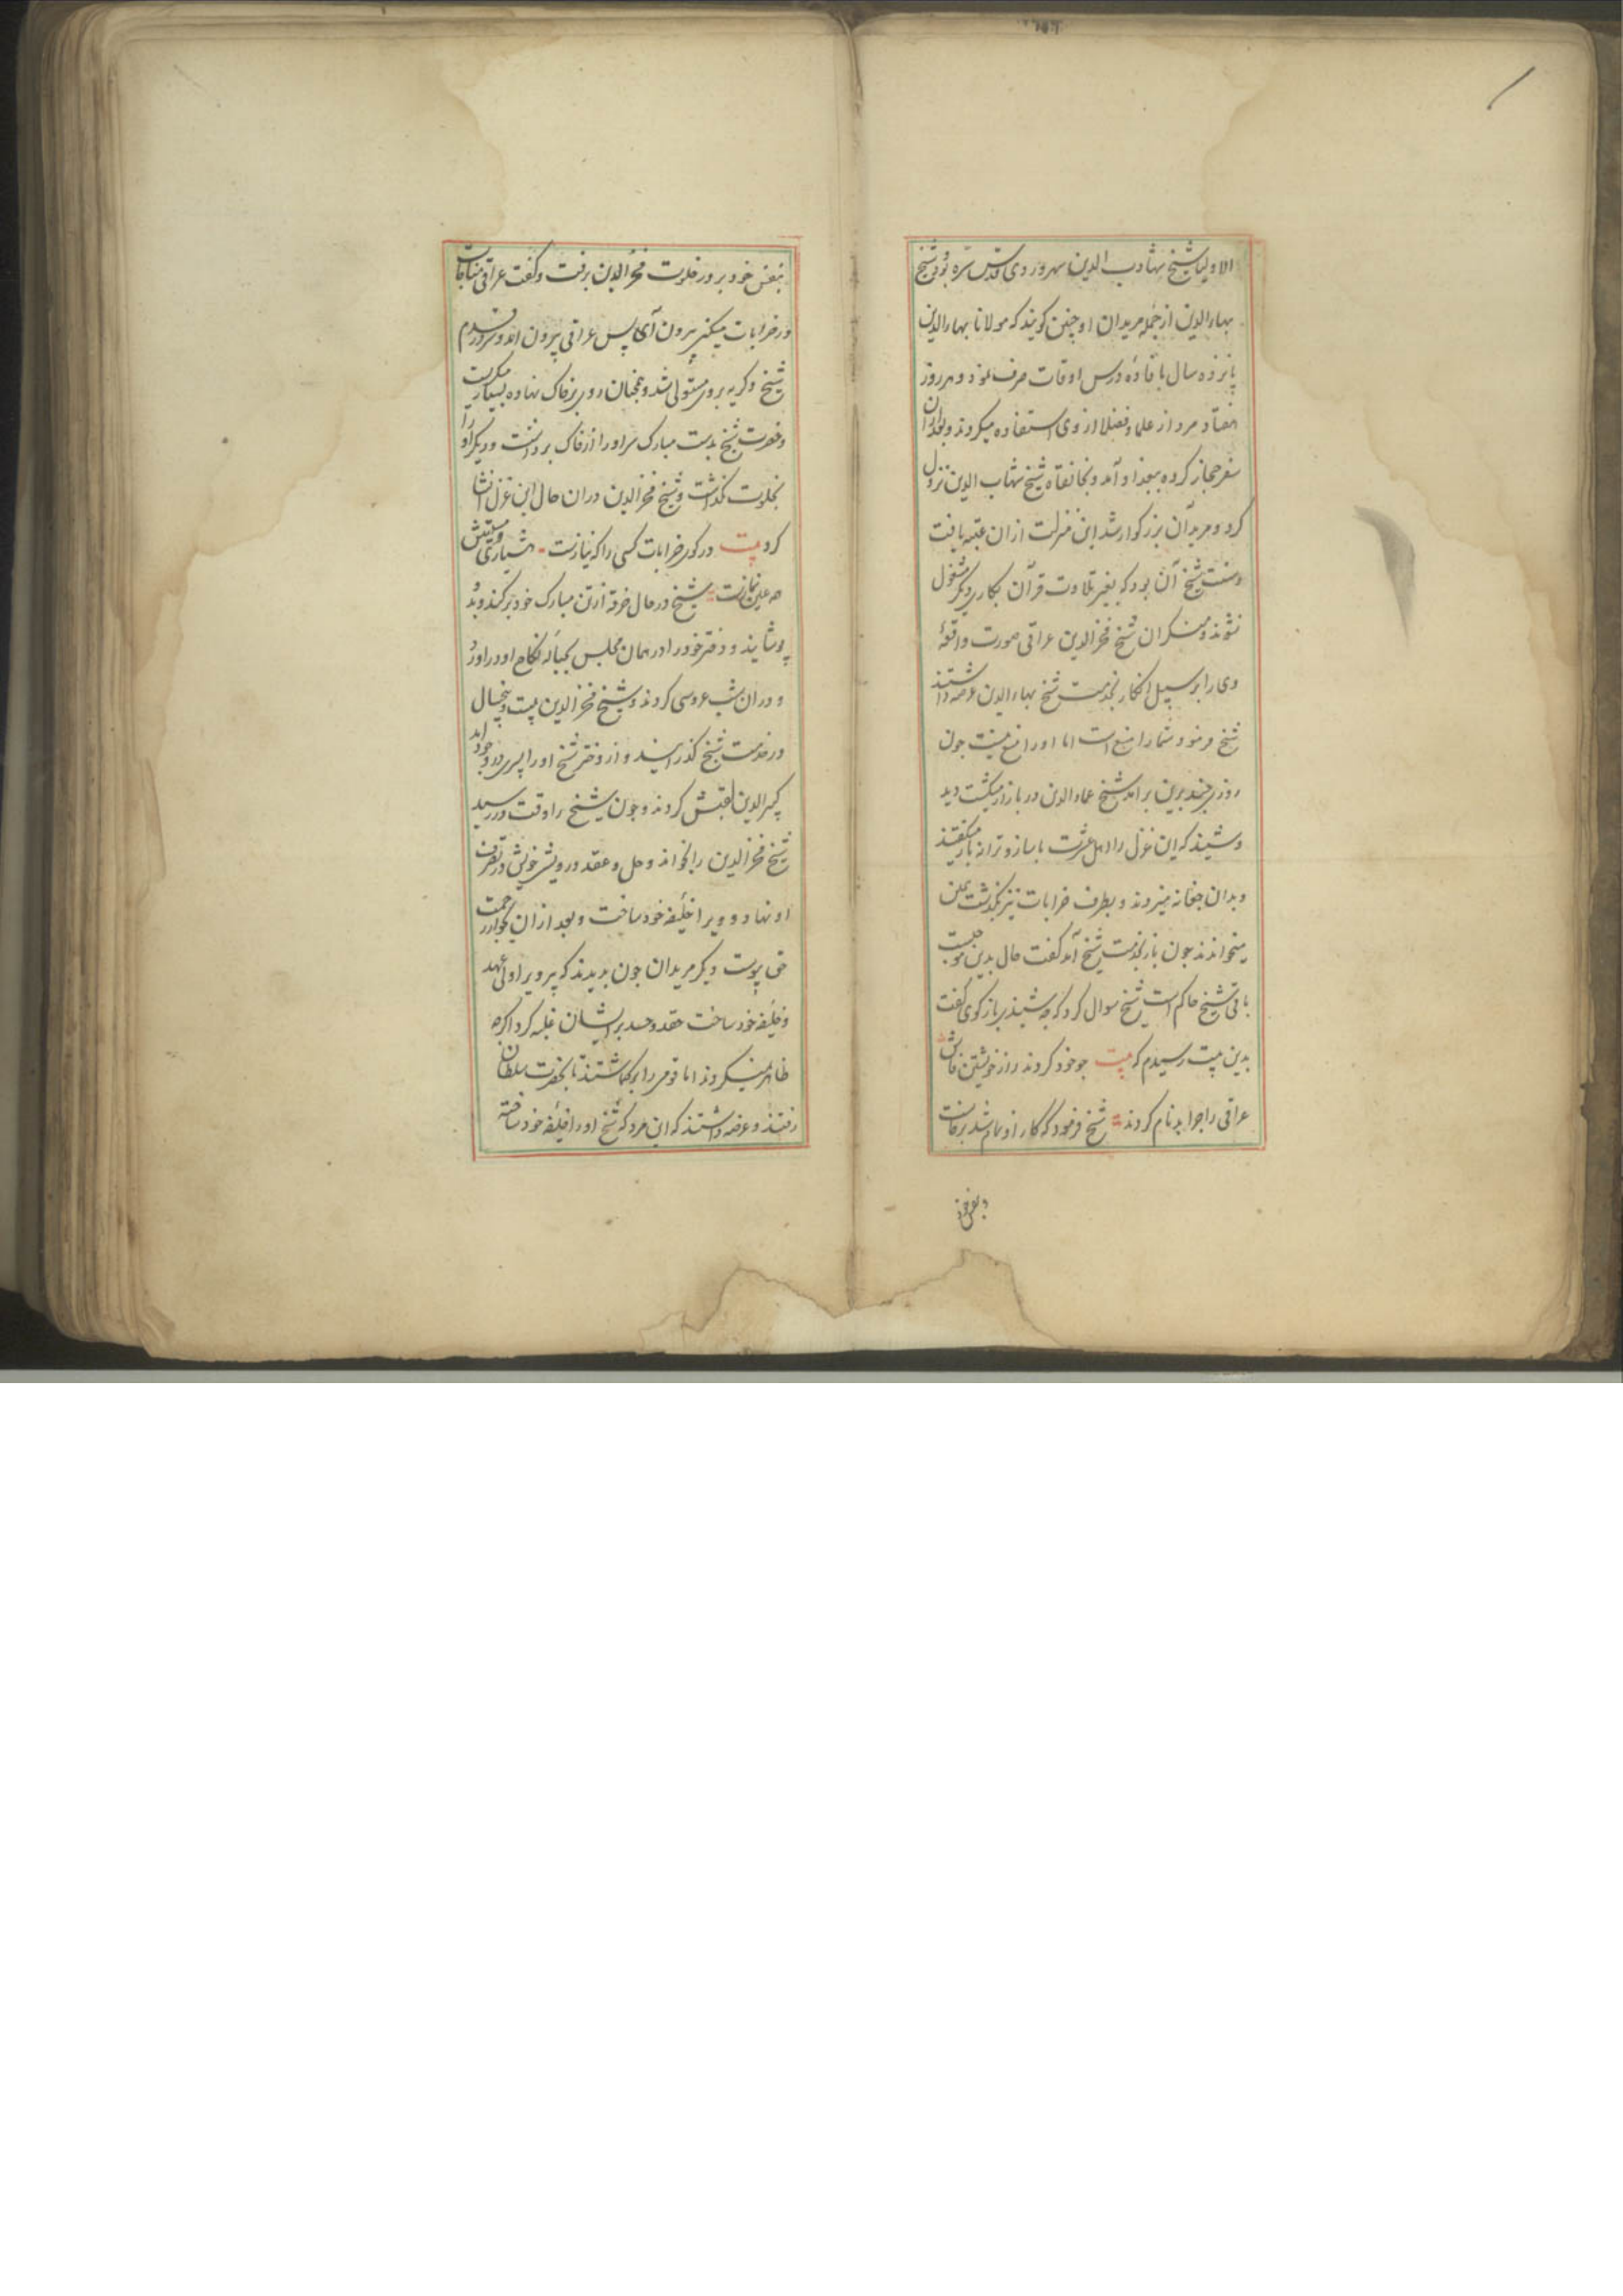 الاولیا شیخ شهاب الدین سهروردی قدس سره بود و شیخ
بهاءالدین از جمله مریدان او چنین کویند که مولانا بهاءالدین
پانزده سال بافاده درس اوقات صرف نمود و هر روز
هفتاد مرد از علما و فضلا از وی استفاده میکردند و بعد ازان
سفر حجاز کرده ببغداد آمد و بخانقاه شیخ شهاب الدین نزول
کرد و مرید آن بزرکوار شد این منزلت ازان عتبه یافت
و سنت شیخ آن بود که بغیر تلاوت قرآن بکاری دیکر مشغول
نشوند و منکران شیخ فخرالدین عراقی صورت واقعه
وی را بر سبیل انکار بخدمت شیخ بهاءالدین عرضه داشتند
شیخ فرمود شما را منع است اما او را منع نیست جون
روزی چند برین برامد شیخ عمادالدین در بازار میکشت دید
و شنید که این غزل را اهل عشرت با ساز و ترانه باز میکفتند
و بدان جغانه میزدند و بطرف خرابات نیز بکذشت همین
میخواندند جون باز بخدمت شیخ آمد کفت حال بدین موجبست
باقی شیخ حاکم است شیخ سوال کرد که چه شنیدی باز کوی کفت
بدین بیت رسیدم که بیت جو خود کردند راز خویشتن فاش
عراقی را جرا بدنام کردند شیخ فرمود که کار او تمام شد برخاست
و بنفس خود
بنفس خود بر در خلوت فخرالدین برفت و کفت عراقی مناجات
در خرابات میکنی بیرون آی پس عراقی بیرون امد و سر در قدم
شیخ و کریه بر وی مستولی شد و همجنان روی بر خاک نهاده بسیار میکریست
و حضرت شیخ بدست مبارک سر او را از خاک برداشت و دیکر او را
بخلوت نکذاشت و شیخ فخرالدین دران حال این غزل انشا
کرد بیت در کوی خرابات کسی را که نیازست هشیاری و مستیش
همه عین نمازست شیخ در حال خرقه از تن مبارک خود برکند و بدو
پوشانید و دختر خود را در همان مجلس بحباله نکاح او در اورد
و دران شب عروسی کردند و شیخ فخرالدین بیست و پنجسال
در خدمت شیخ کذرانید و از دختر شیخ او را پسری در وجود امد
کبیرالدین لقبش کردند و جون شیخ را وقت در رسید
شیخ فخرالدین را بخواند و حل و عقد درویشی خویش در تصرف
او نهاد و ویرا خلیفه خود ساخت و بعد ازان بجوار رحمت
حق پیوست دیکر مریدان جون بدیدند که پیر ویرا ولی عهد
و خلیفه خود ساخت حقد و حسد بر ایشان غلبه کرد اکرچه
ظاهر نمیکردند اما قومی را برکماشتند تا بحضرت سلطان
رفتند و عرضه داشتند که این مرد که شیخ او را خلیفه خود ساخته